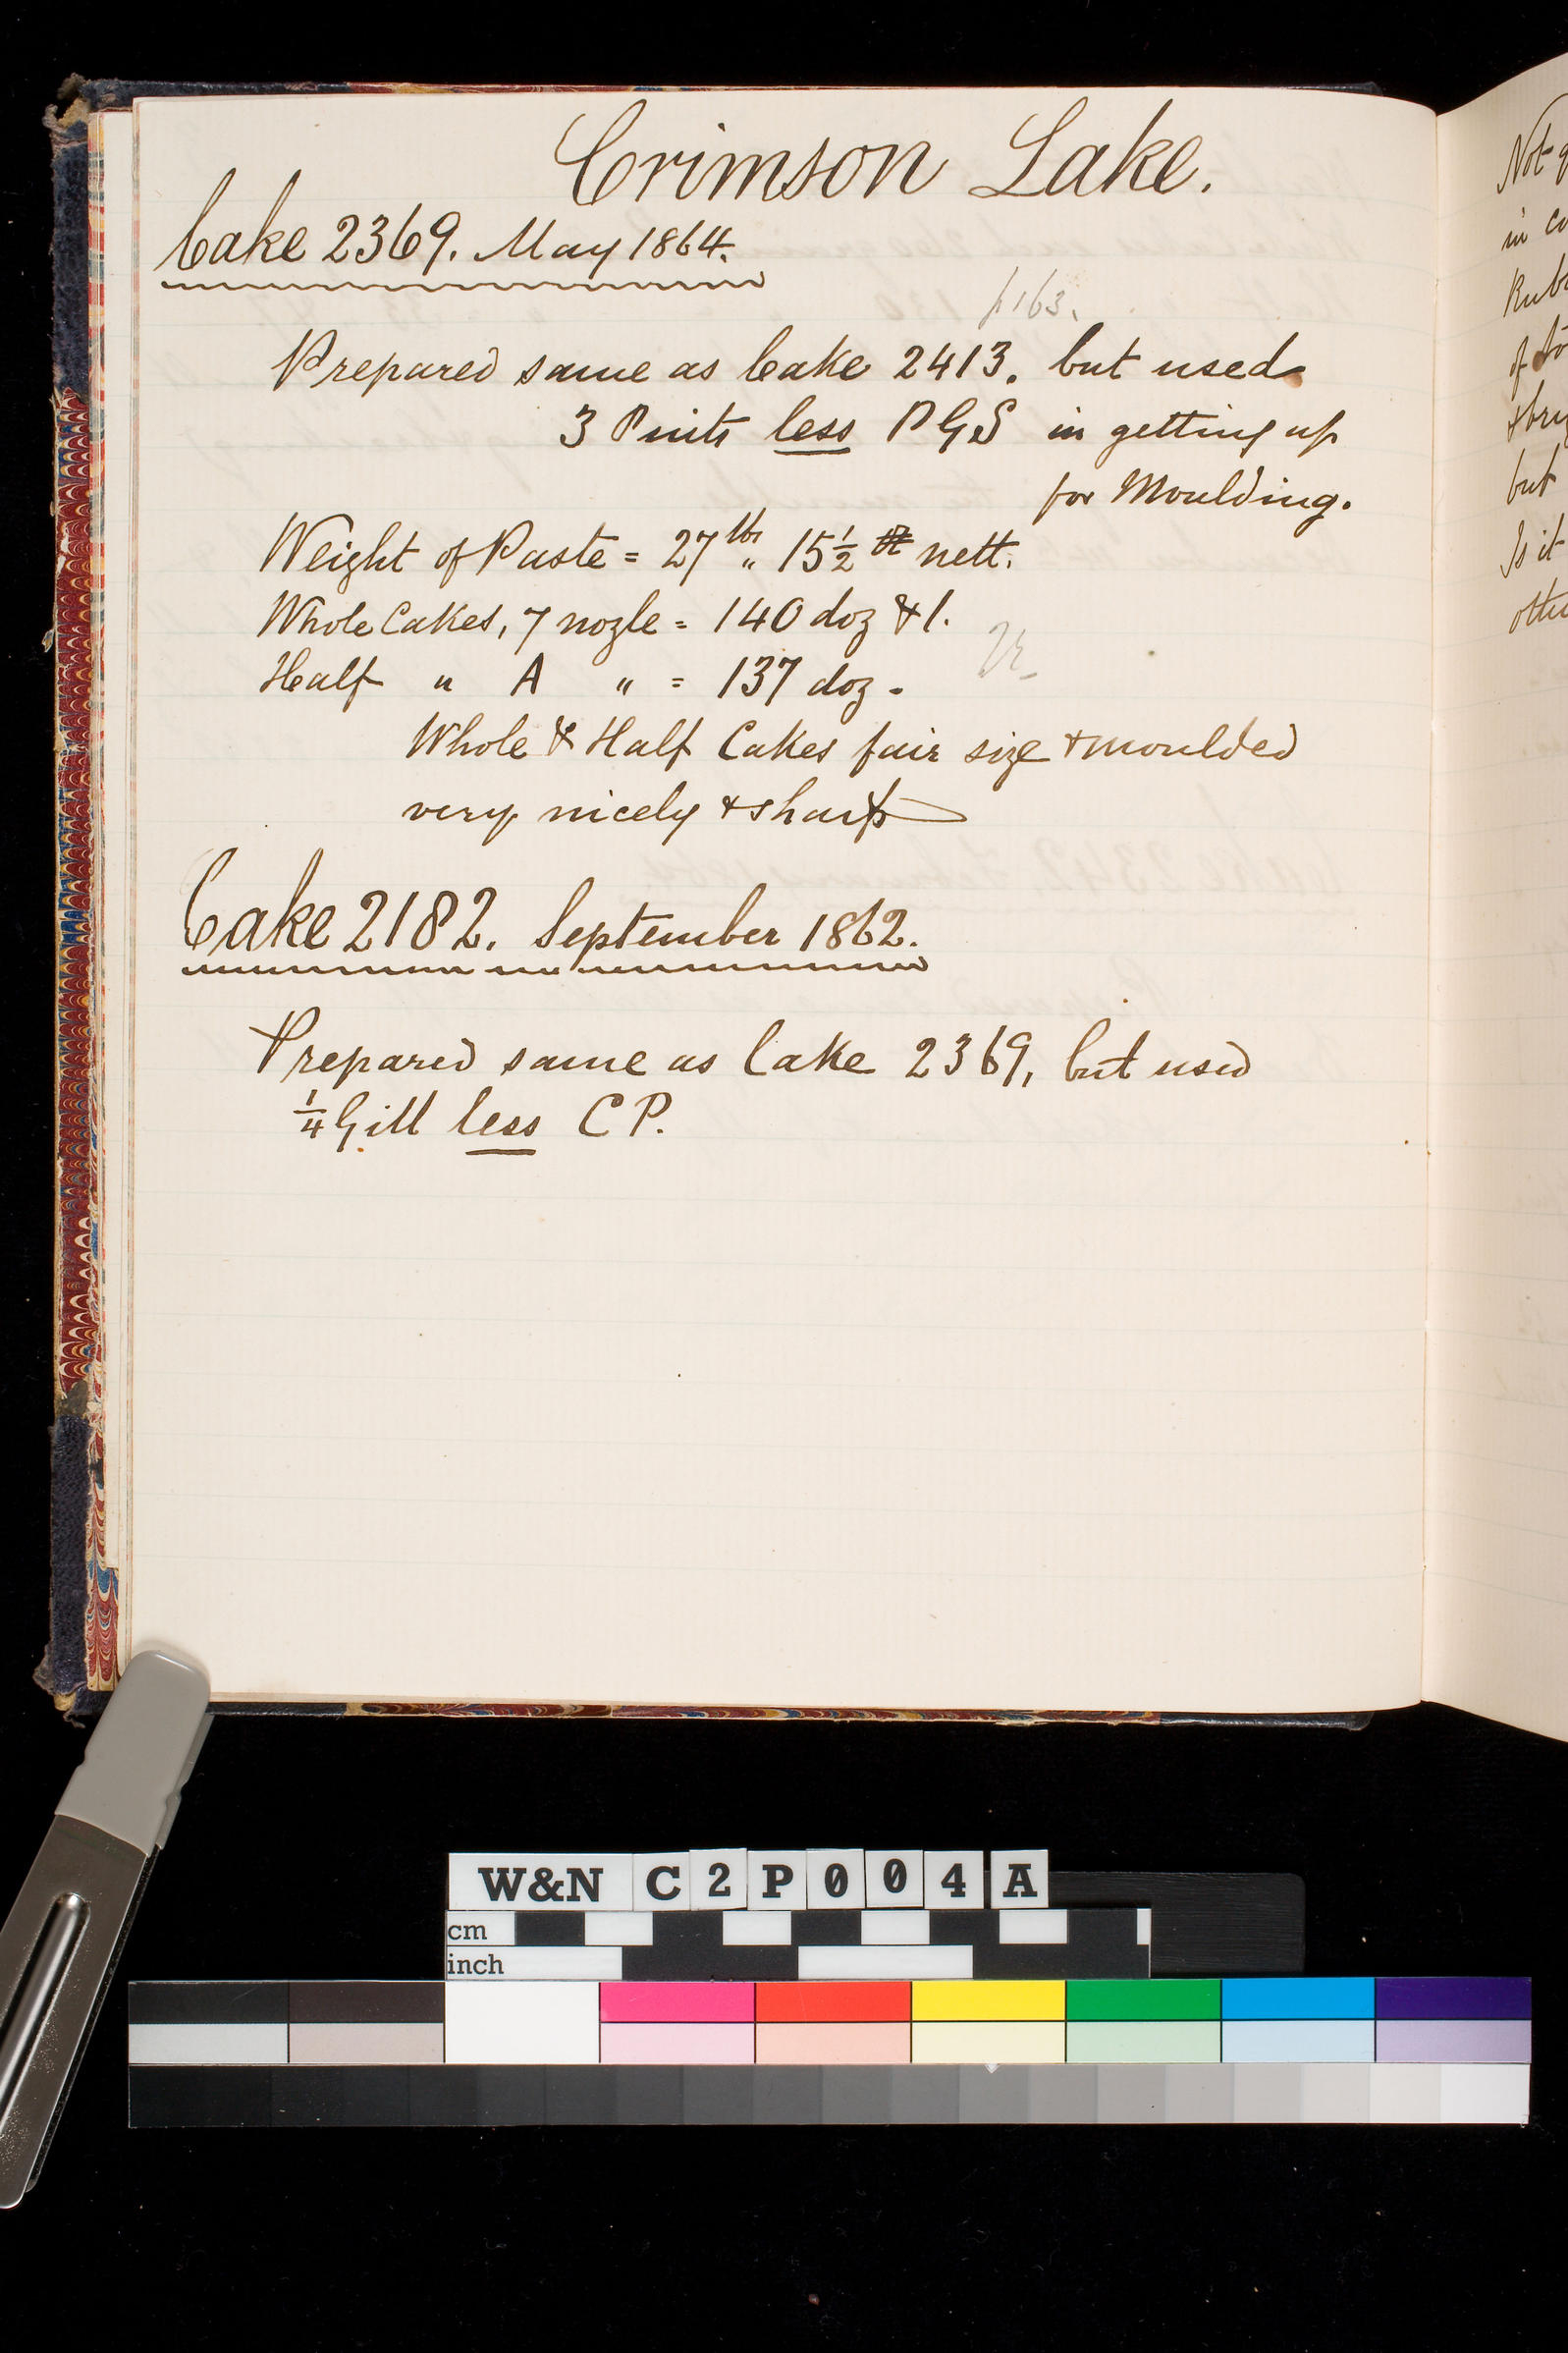 Crimson Lake.
Cake 2369. May 1864.
p163.
Prepared same as Cake 2413. but used
3 Pints less PGS in getting up
for Moulding.
Weight of Paste = 27 lbs 〃 15½ nett.
Whole Cakes, 7 nozle = 140 doz & 1.
Half 〃 A 〃 = 137 doz.
Whole & Half Cakes fair size & moulded
very nicely & sharp
Cake 2182. September 1862.
Prepared same as Cake 2369, but used
¼ Gill less CP.
Not
in
of
but
Is it
W&N C2P004A
cm
inch